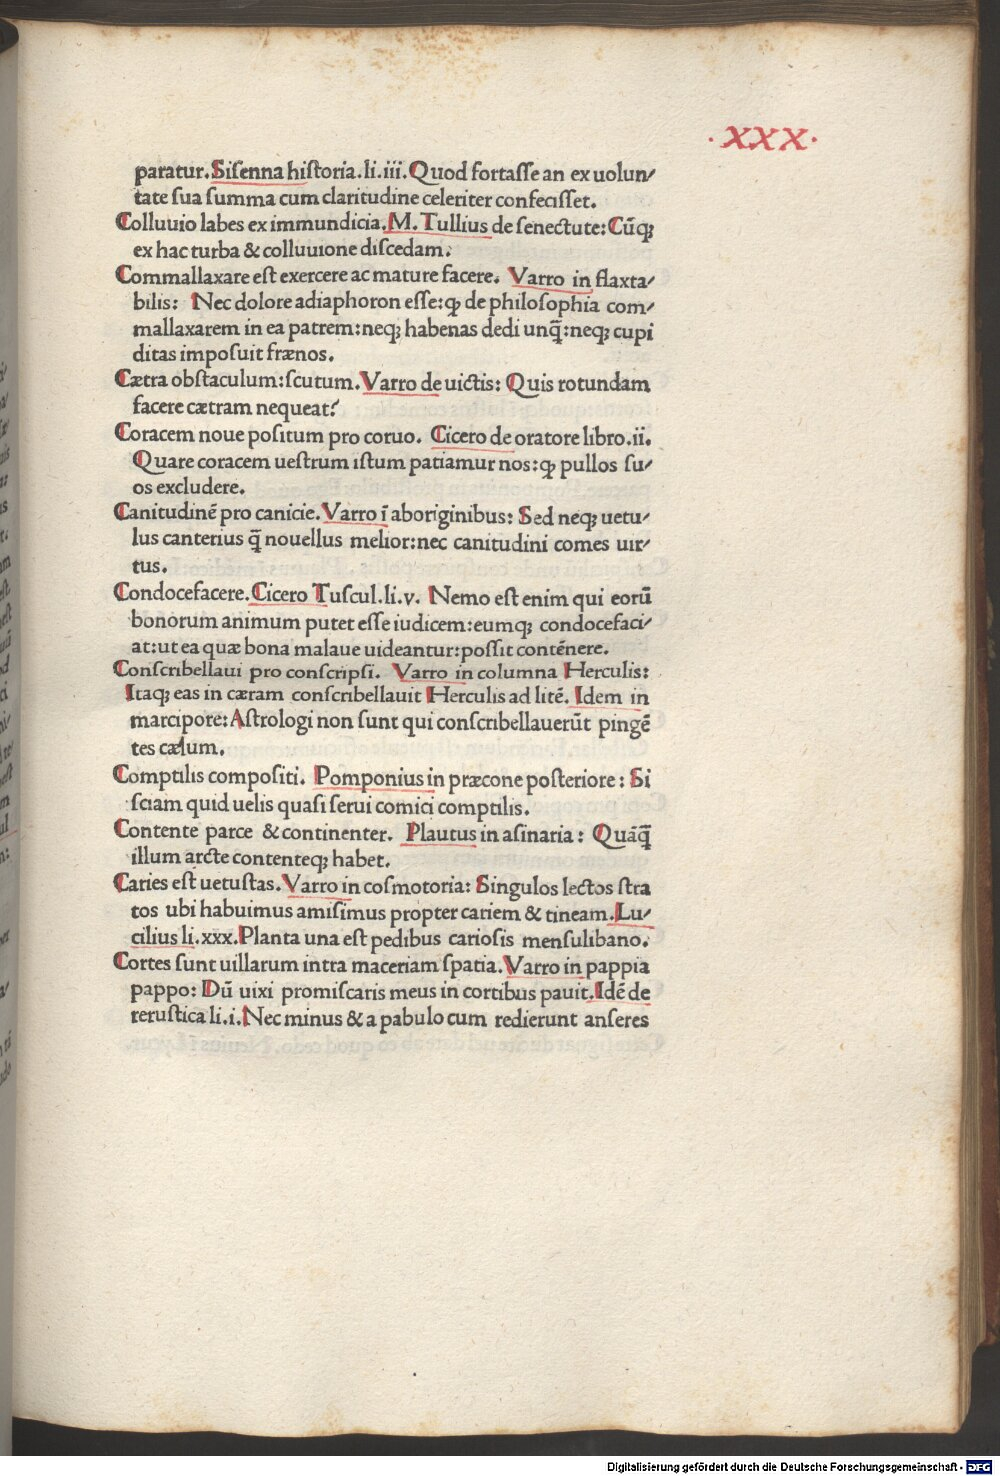 ·XXX·
paratur. Sisenna historia.li.iii. Quod fortasse an ex uolun/
tate sua summa cum claritudine celeriter confecisset.
Colluuio labes ex immundicia. M. Tullius de senectute: Cūqꝫ
ex hac turba & colluuione discedam.
Commallaxare est exercere ac mature facere. Varro in flaxta/
bilis: Nec dolore adiaphoron esse: ꝙ de philosophia com/
mallaxarem in ea patrem: neqꝫ habenas dedi unq̄: neqꝫ cupi
ditas imposuit frænos.
Cætra obstaculum: scutum. Varro de uictis: Quis rotundam
facere cætram nequeat?
Coracem noue positum pro coruo. Cicero de oratore libro.ii.
Quare coracem uestrum istum patiamur nos: ꝙ pullos su/
os excludere.
Canitudinē pro canicie. Varro ī aboriginibus: Sed neqꝫ uetu/
lus canterius q̄ nouellus melior: nec canitudini comes uir/
tus.
Condocefacere. Cicero Tuscul.li.v. Nemo est enim qui eorū
bonorum animum putet esse iudicem: eumqꝫ condocefaci/
at: ut ea quæ bona malaue uideantur: possit contēnere.
Conscribellaui pro conscripsi. Varro in columna Herculis:
Itaqꝫ eas in cæram conscribellauit Herculis ad litē. Idem in
marcipore: Astrologi non sunt qui conscribellauerūt pingē
tes cælum.
Comptilis compositi. Pomponius in præcone posteriore: Si
sciam quid uelis quasi serui comici comptilis.
Contente parce & continenter. Plautus in asinaria: Quāq̄
illum arcte contenteqꝫ habet.
Caries est uetustas. Varro in cosmotoria: Singulos lectos stra
tos ubi habuimus amisimus propter cariem & tineam. Lu/
cilius li.xxx. Planta una est pedibus cariosis mensulibano.
Cortes sunt uillarum intra maceriam spatia. Varro in pappia
pappo: Dū uixi promiscaris meus in cortibus pauit. Idē de
rerustica li.i. Nec minus & a pabulo cum redierunt anseres
Digitalisierung gefördert durch die Deutsche Forschungsgemeinschaft - DFG